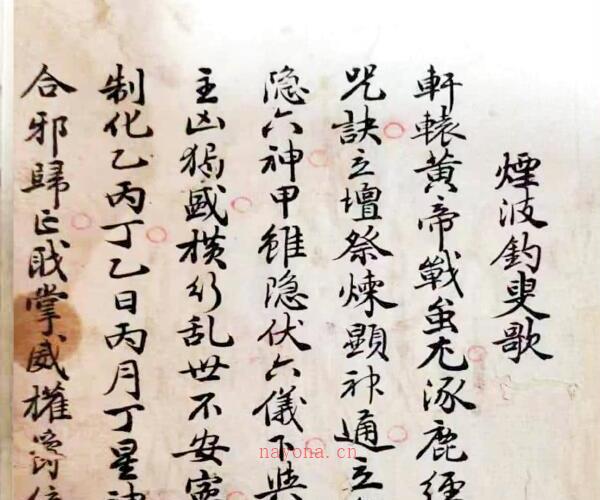 煙波釣叟歌
軒轅黃帝戰蚩尤涿鹿經
咒訣立壇祭煉顯神通立
隐六神甲雖隐伏六儀下與
主凶猖盛横行乱世不安寧
制化乙丙丁乙日丙月丁星
合邪歸正戝掌威權
nayona.cn